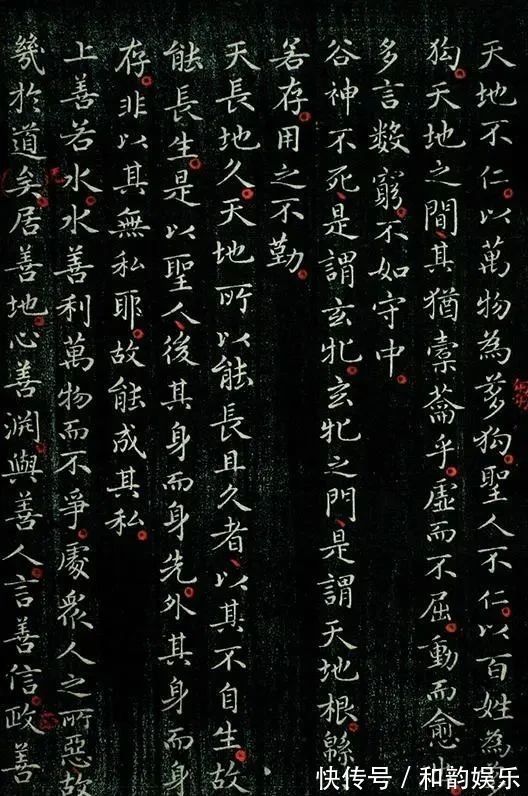 天地不仁以萬物為芻狗聖人不仁以百姓為芻
狗天地之間其猶橐籥乎虛而不屈動而愈出
多言數窮不如守中
谷神不死是謂玄牝玄牝之門是謂天地根緜
若存用之不勤
天長地久天地所以能長且久者以其不自生故
能長生是以聖人後其身而身先外其身而身
存非以其無私耶故能成其私
上善若水水善利萬物而不爭處眾人之所惡故
幾於道矣居善地心善淵與善人言善信政善
快传号／和韵娱乐